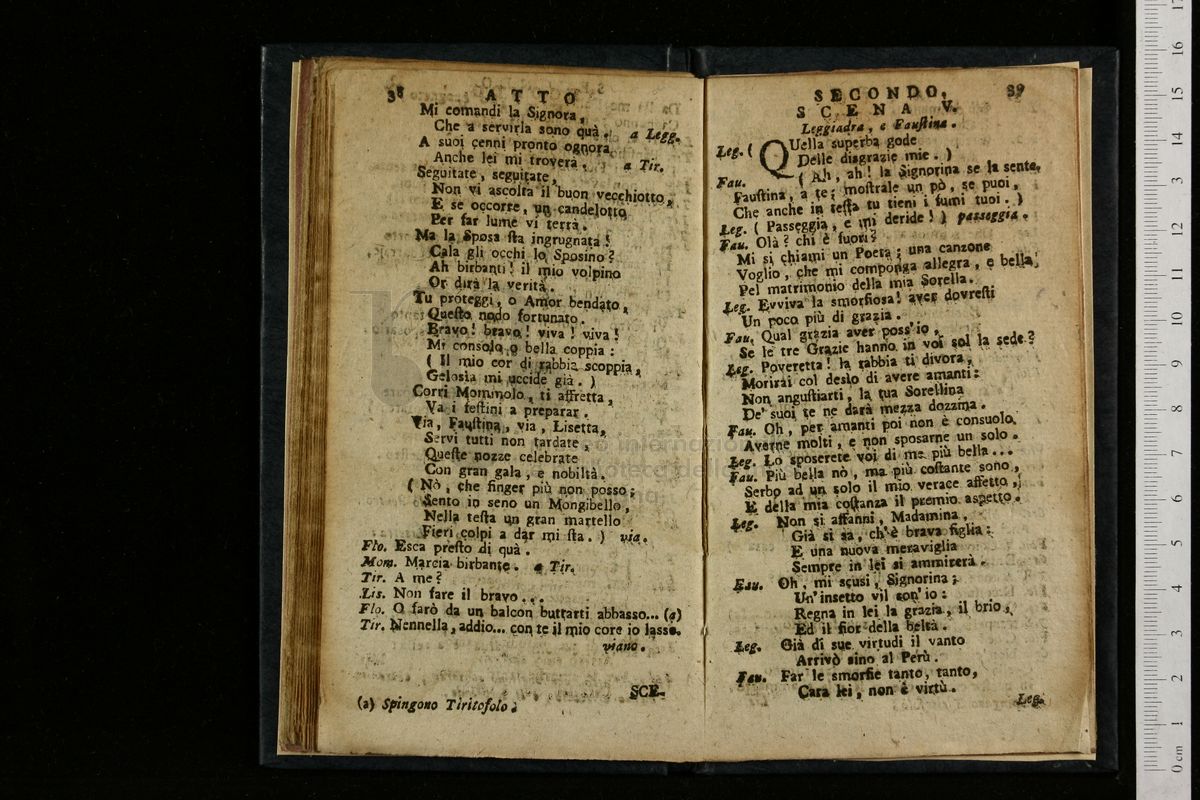 38 ATTO
Mi comandi la Signora,
Che a servirla sono quà. a Legg.
A suoi cenni pronto ognora
Anche lei mi troverà. a Tir.
Seguitate, seguitate,
Non vi ascolta il buon vecchiotto,
E se occorre, un candelotto
Per far lume vi terrà.
Ma la Sposa sta ingrugnata!
Cala gli occhi lo Sposino?
Ah birbanti! il mio volpino
Or dirà la verità.
Tu proteggi, o Amor bendato,
Questo nodo fortunato.
Bravo! bravo! viva! viva!
Mi consolo o bella coppia:
( Il mio cor di rabbia scoppia,
Gelosia mi uccide già. )
Corri Mommolo, ti affretta,
Va i festini a preparar.
Via, Faustina, via, Lisetta,
Servi tutti non tardate,
Queste nozze celebrate
Con gran gala, e nobiltà.
( Nò, che finger più non posso;
Sento in seno un Mongibello,
Nella testa un gran martello
Fieri colpi a dar mi sta. ) via.
Flo. Esca presto di quà.
Mom. Marcia birbante. a Tir.
Tir. A me?
Lis. Non fare il bravo...
Flo. O farò da un balcon buttarti abbasso... (a)
Tir. Nennella, addio... con te il mio core io lasso.
viano.
SCE-
(a) Spingono Tiritofolo.
SECONDO. 39
SCENA V.
Leggiadra, e Faustina.
Leg. ( QUella superba gode
Delle disgrazie mie. )
Fau. ( Ah, ah! la Signorina se la sente,
Faustina, a te; mostrale un pò, se puoi,
Che anche in testa tu tieni i fumi tuoi. )
Leg. ( Passeggia, e mi deride! ) passeggia.
Fau. Olà? chi è fuori?
Mi si chiami un Poeta; una canzone
Voglio, che mi componga allegra, e bella,
Pel matrimonio della mia Sorella.
Leg. Evviva la smorfiosa! aver dovresti
Un poco più di grazia.
Fau. Qual grazia aver poss'io,
Se le tre Grazie hanno in voi sol la sede?
Leg. Poveretta! la rabbia ti divora,
Morirai col desìo di avere amanti:
Non angustiarti, la tua Sorellina
De' suoi te ne darà mezza dozzina.
Fau. Oh, per amanti poi non è consuolo
Averne molti, e non sposarne un solo.
Leg. Lo sposerete voi di me più bella...
Fau. Più bella nò, ma più costante sono,
Serbo ad un solo il mio verace affetto,
E della mia costanza il premio aspetto.
Leg. Non si affanni, Madamina,
Già si sa, ch'è brava figlia:
E una nuova meraviglia
Sempre in lei si ammirerà.
Fau. Oh, mi scusi, Signorina;
Un' insetto vil son' io:
Regna in lei la grazia, il brio,
Ed il fior della beltà.
Leg. Già di sue virtudi il vanto
Arrivò sino al Perù.
Fau. Far le smorfie tanto, tanto,
Cara lei, non è virtù.
Leg.